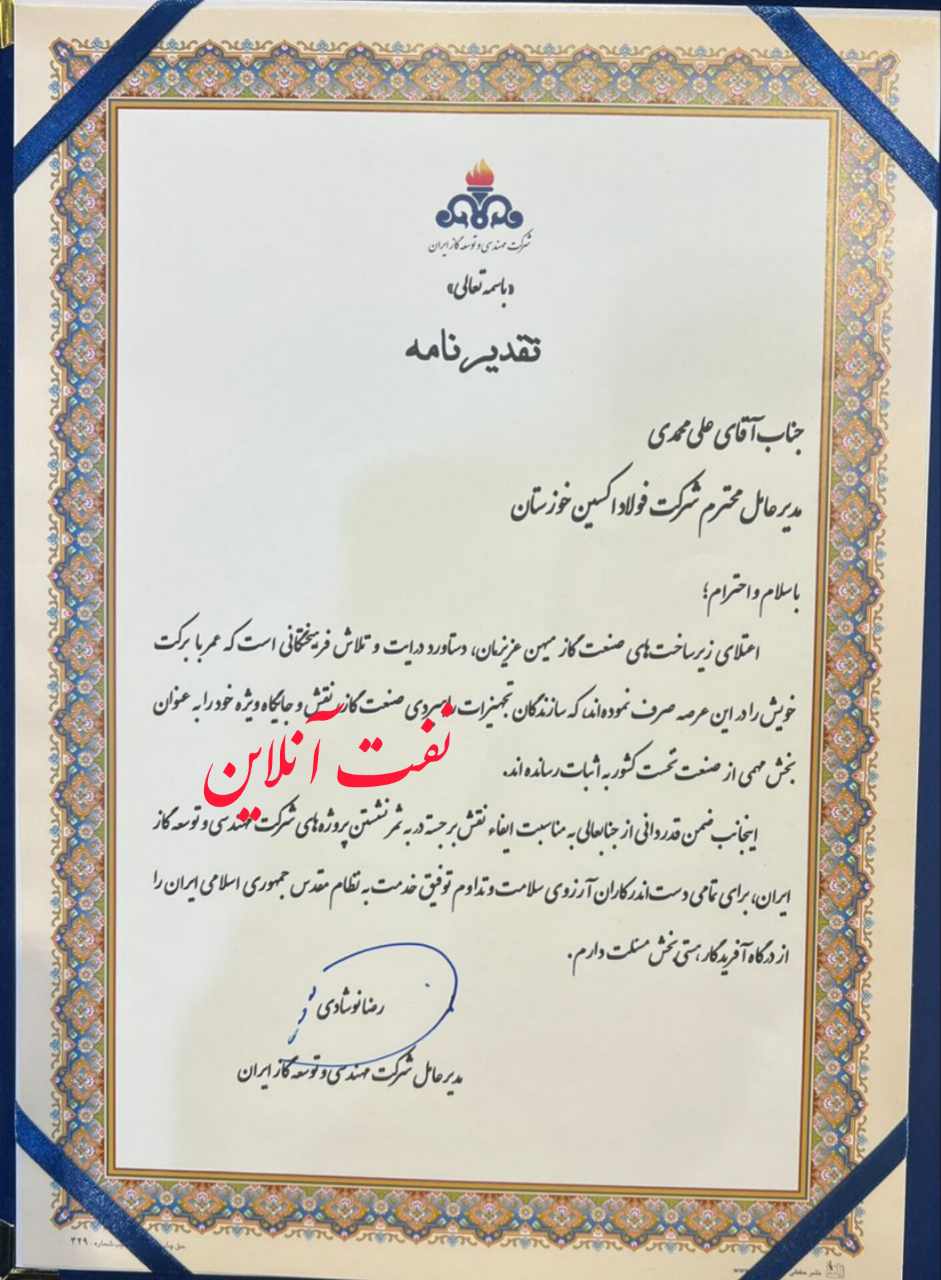 شرکت مهندسی و توسعه گاز ایران
«باسمه تعالی»
تقدیرنامه
جناب آقای علی محمدی
مدیرعامل محترم شرکت فولاد اکسین خوزستان
باسلام و احترام؛
اعتلای زیرساخت‌های صنعت گاز میهن عزیزمان، دستاورد درایت و تلاش فرهیختگانی است که عمر با برکت
خویش را در این عرصه صرف نموده‌اند، که سازندگان تجهیزات راهبردی صنعت گاز، نقش و جایگاه ویژه خود را به عنوان
بخش مهمی از صنعت تحت کشور به اثبات رسانده اند.
نفت آنلاین
اینجانب ضمن قدردانی از جنابعالی به مناسبت ایفاء نقش برجسته در به ثمر نشستن پروژه‌های شرکت مهندسی و توسعه گاز
ایران، برای تمامی دست‌اندرکاران آرزوی سلامت و تداوم توفیق خدمت به نظام مقدس جمهوری اسلامی ایران را
از درگاه آفریدگار هستی‌بخش مسئلت دارم.
رضا نوشادی
مدیرعامل شرکت مهندسی و توسعه گاز ایران